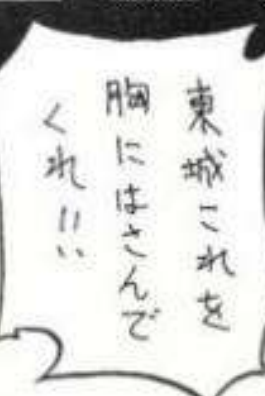 東城これを
胸にはさんで
くれ!!